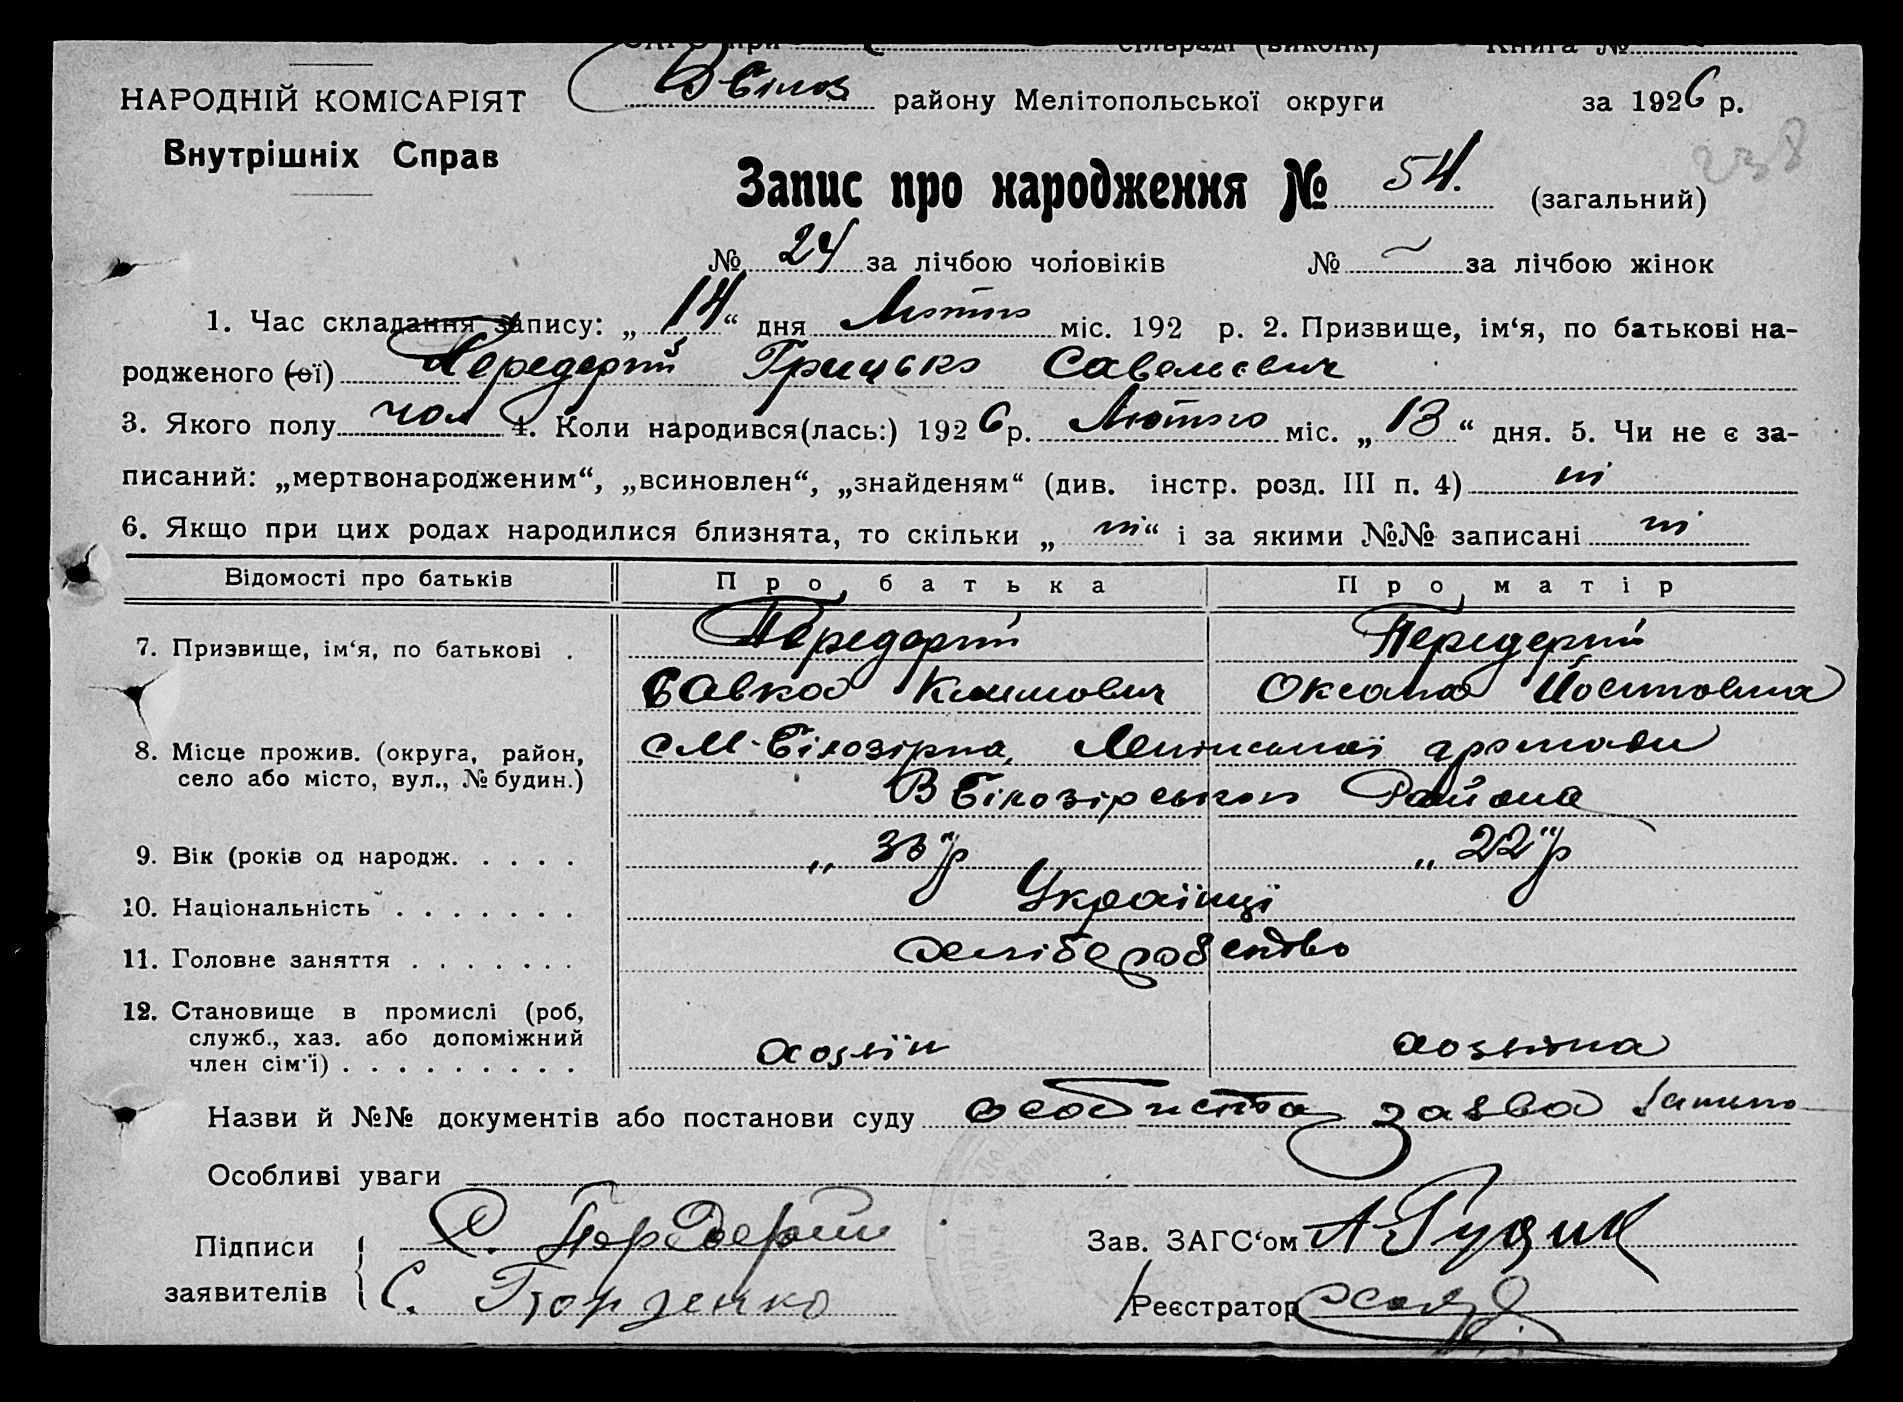 ЗАГС при сільраді (виконк) Книга №
НАРОДНІЙ КОМІСАРІЯТ
В Білоз району Мелітопольської округи за 1926 р.
Внутрішніх Справ
238
Запис про народження № 54. (загальний)
№ 24 за лічбою чоловіків № — за лічбою жінок
1. Час складання запису: „ 14 “ дня Лютого міс. 192 р. 2. Призвище, ім‘я, по батькові на-
родженого (ої) Передерій Грицько Савельевич
3. Якого полу чол 4. Коли народився(лась:) 1926 р. Лютого міс. „ 13 “ дня. 5. Чи не є за-
писаний: „мертвонародженим“, „всиновлен“, „знайденям“ (див. інстр. розд. III п. 4) ні
6. Якщо при цих родах народилися близнята, то скільки „ ні “ і за якими №№ записані ні
Відомості про батьків Про батька Про матір
7. Призвище, ім‘я, по батькові . Передерій Передерій
Савка Климович Оксана Йосиповна
8. Місце прожив. (округа, район, с М-Білозірка, громади
село або місто, вул., № будин.) В Білозірського Района
9. Вік (років од народж. . . . . „ 33 р „ 22 р
10. Національність . . . . . . . Українці
11. Головне заняття . . . . . . . хліборобство
12. Становище в промислі (роб,
служб., хаз. або допоміжний
член сім'ї) . . . . . . . . . . хозяїн хозяйка
Назви й №№ документів або постанови суду особиста заява
Особливі уваги
Підписи С. Передерій Зав. ЗАГС‘ом А Гудим
заявителів С. Реєстратор